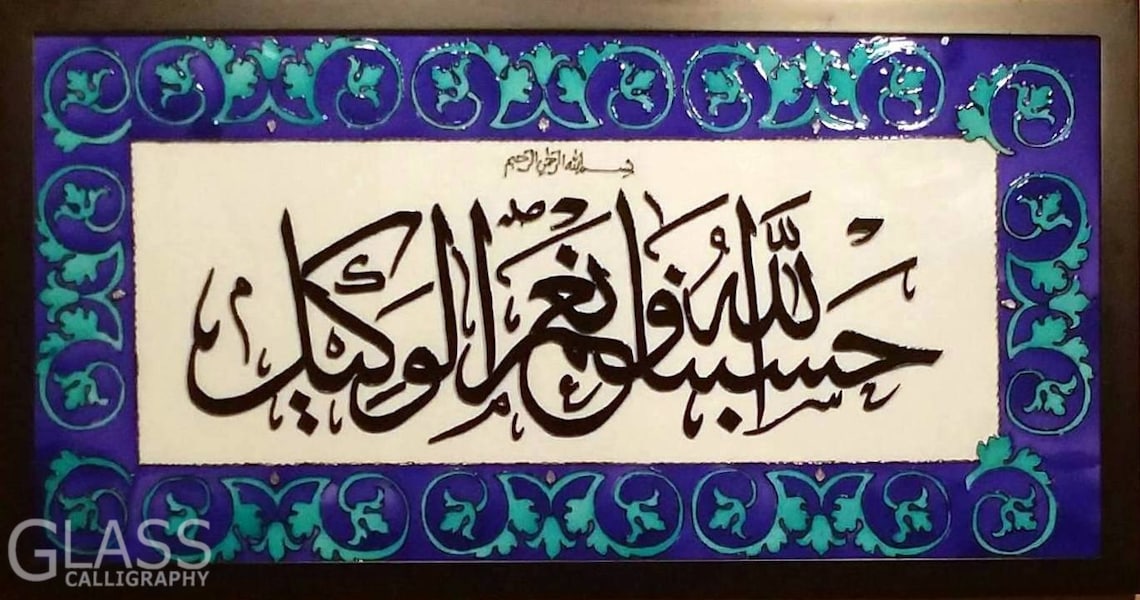 بسم الله الرحمن الرحيم
حسبنا الله ونعم الوكيل
GLASS
CALLIGRAPHY